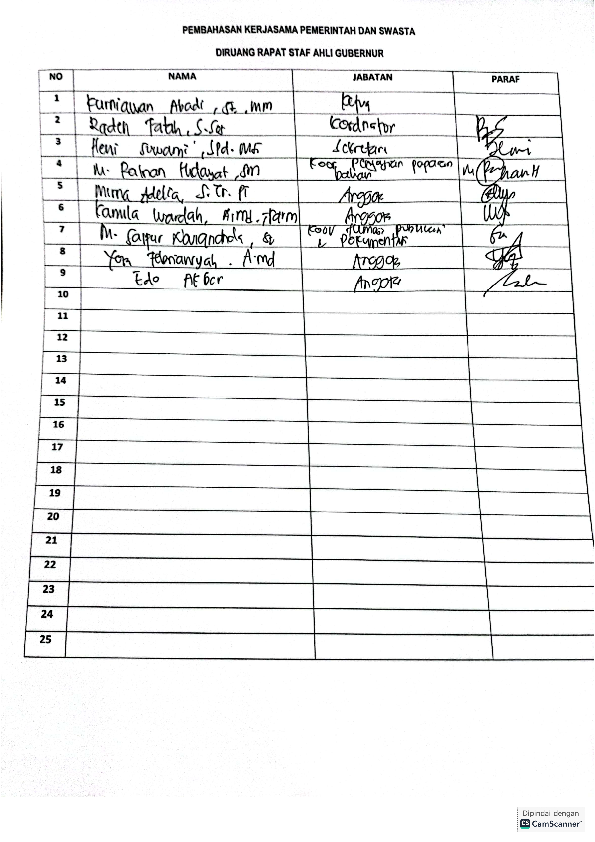 PEMBAHASAN KERJASAMA PEMERINTAH DAN SWASTA
DIRUANG RAPAT STAF AHLI GUBERNUR
NO NAMA JABATAN PARAF
1 Kurniawan Abadi, SE, MM Ketua
2 Raden Fatah, S.Sos Koordinator
3 Heni Suwarni, SPd. MSi Sekretaris
4 M. Raihan Hidayat, SM Koor Penyiapan paparan
bahan
5 Mirna Adelia, S.Tr.Pi Anggota
6 Kamila Wardah, A.md.Farm Anggota
7 M. Saipur Koor Humas Publikasi
& Dokumentasi
8 Yora Febriansyah. A.md Anggota
9 Edo Akbar Anggota
10
11
12
13
14
15
16
17
18
19
20
21
22
23
24
25
Dipindai dengan
CS CamScanner